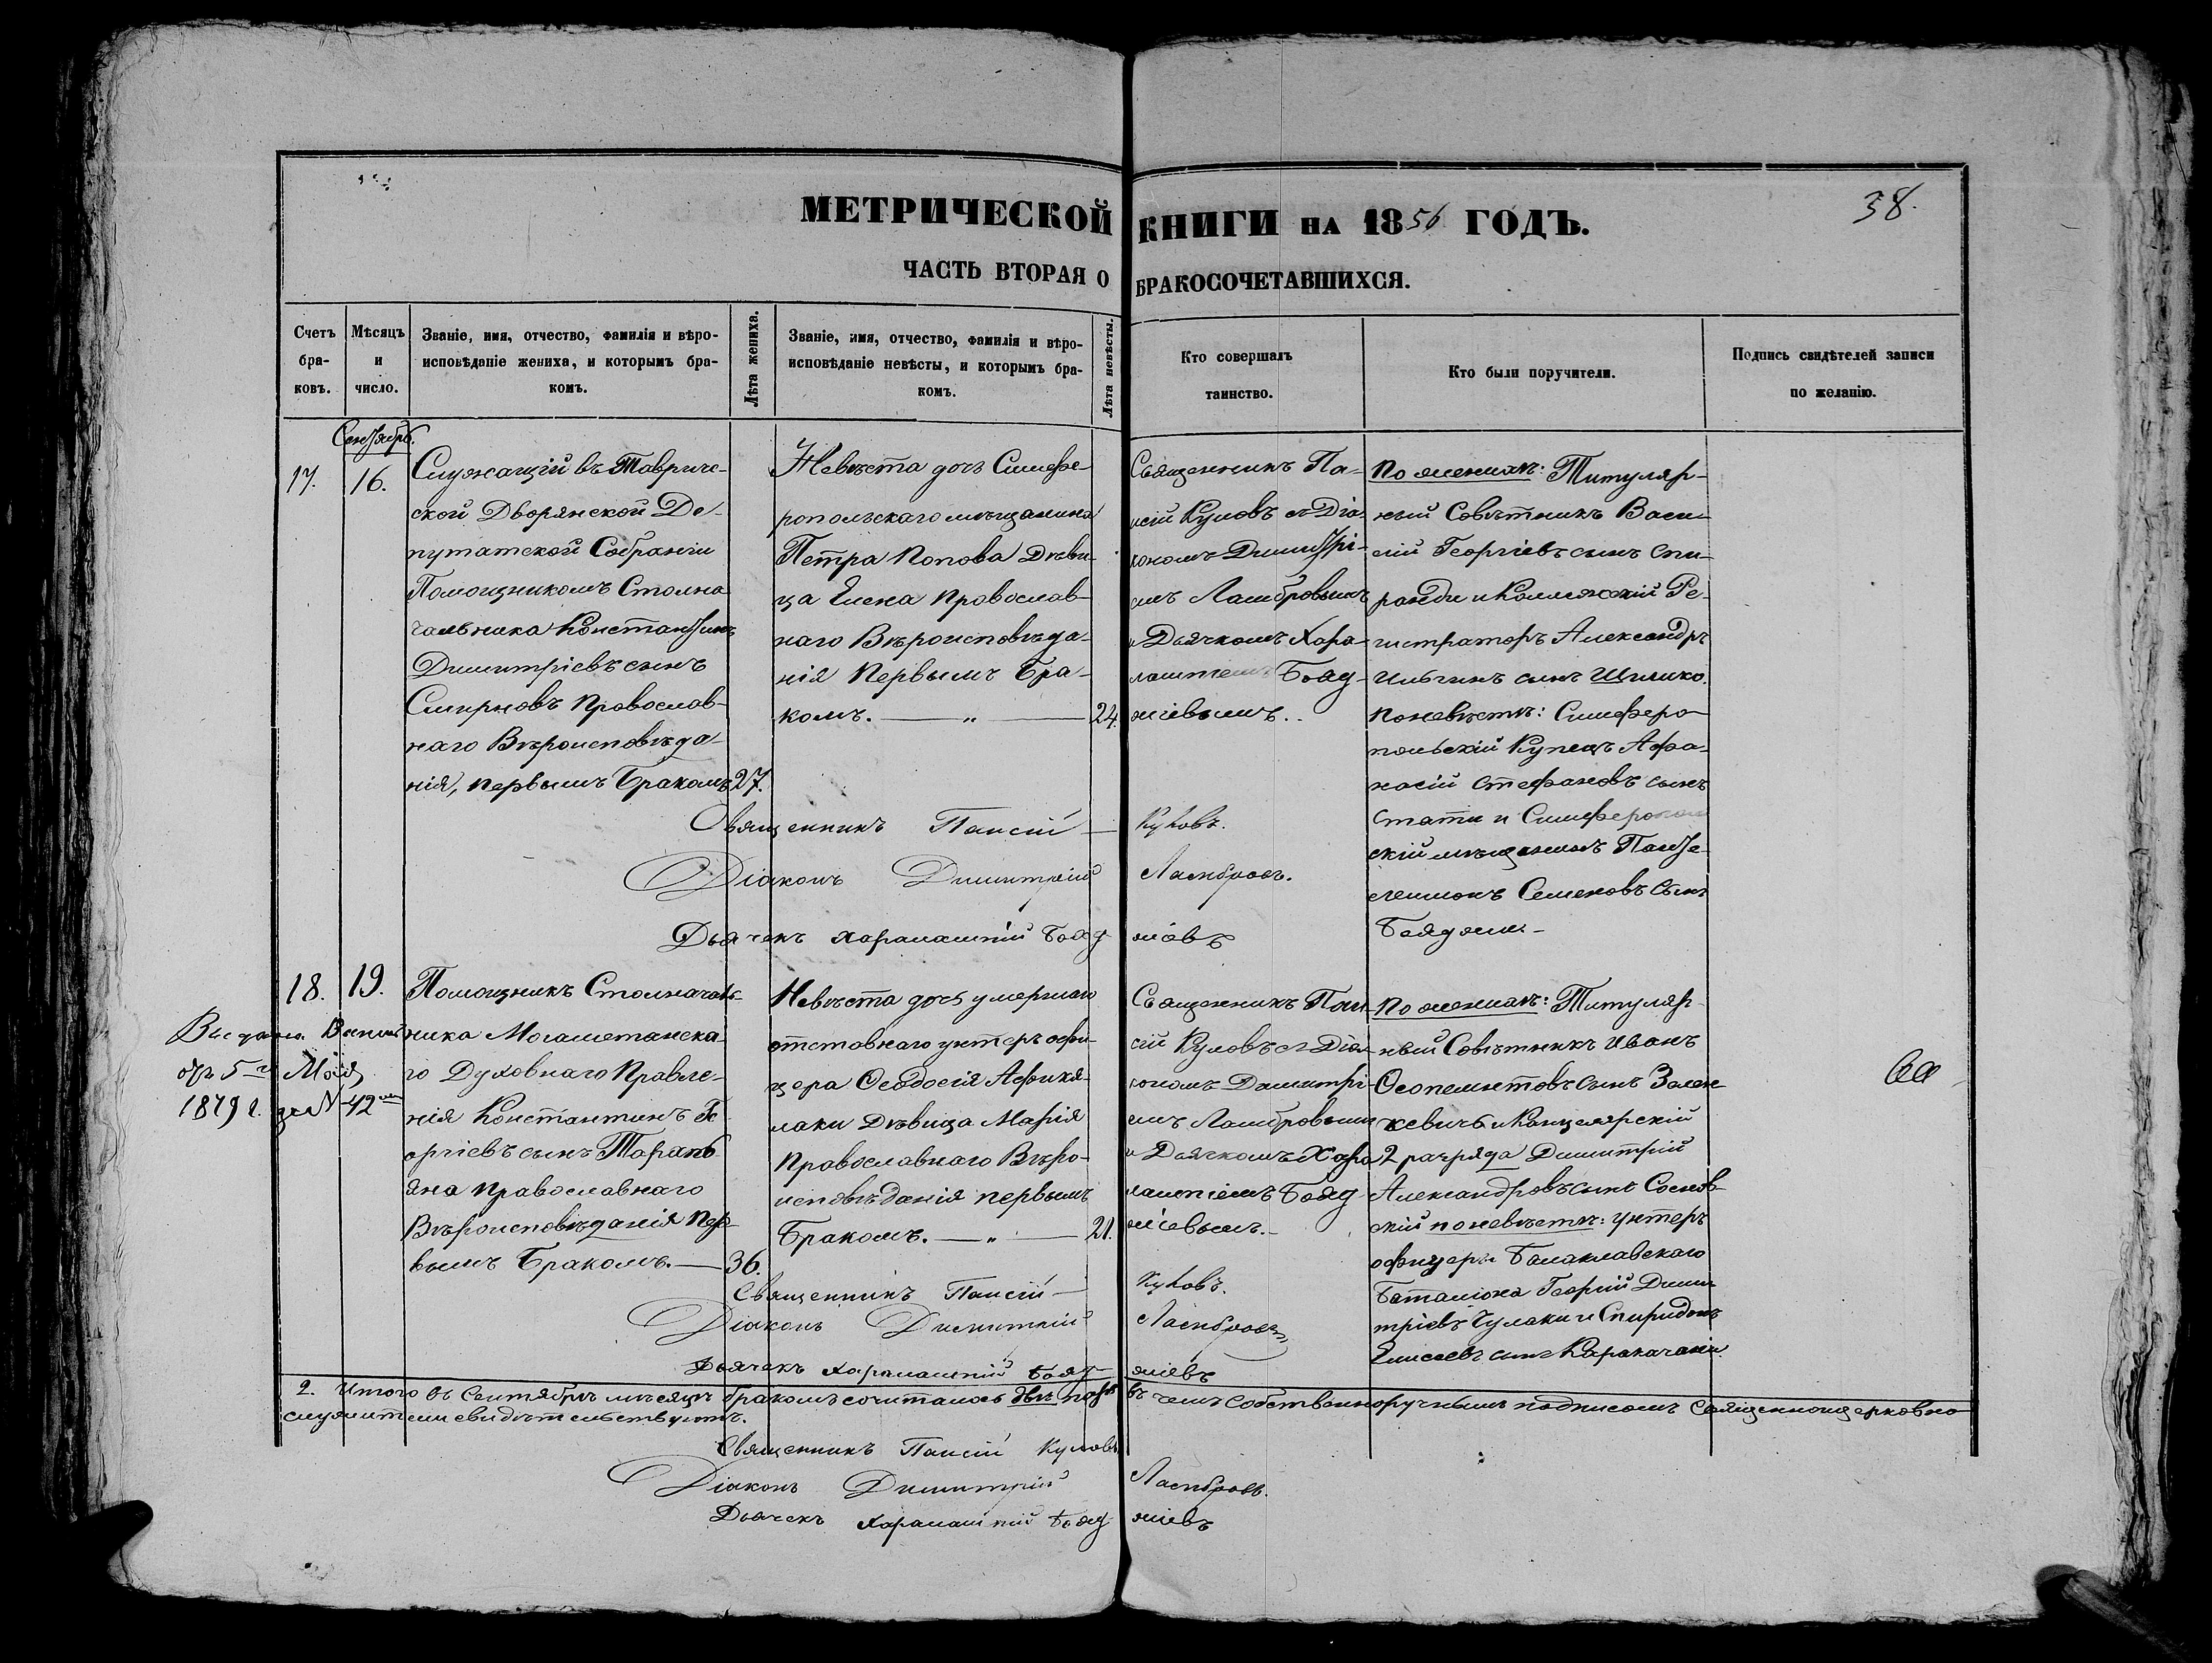 МЕТРИЧЕСКОЙ КНИГИ НА 1856 ГОДЪ.
38.
ЧАСТЬ ВТОРАЯ О БРАКОСОЧЕТАВШИХСЯ.
Счетъ бра-
ковъ.
Мѣсяцъ
и
число.
Званіе, имя, отчество, фамилія и вѣро-
исповѣданіе жениха, и которымъ бра-
комъ.
Лѣта жениха.
Званіе, имя, отчество, фамилія и вѣро-
исповѣданіе невѣсты, и которымъ бра-
комъ.
Лѣта невѣсты.
Кто совершалъ
таинство.
Кто были поручители.
Подпись свидѣтелей записи
по желанію.
Сентябрь.
17.
16.
Служащій въ Тавриче-
ской Дворянской Де-
путатской Собраніи
Помощникомъ Столна
чальника Константинъ
Димитріевъ сынъ
Смирновъ Православ-
наго Вѣроисповѣда-
нія, первымъ Бракомъ
27.
Невѣста дочь Симфе-
ропольскаго мѣщанина
Петра Попова Дѣви-
ца Елена Православ-
наго Вѣроисповѣда-
нія Первымъ Бра-
комъ. — „ —
24.
Священникъ Па-
исій Куловъ съ Діа-
кономъ Димитрі-
емъ Ламбровымъ
и Дьячкомъ Хара-
лампіемъ Бояд-
жіевымъ.
По женихѣ: Титуляр-
ный Совѣтникъ Васи-
лій Георгіевъ сынъ Спи-
ранди и Коллежскій Ре-
гистраторъ Александръ
Ильинъ сынъ Шишко.
по невѣстѣ: Симферо-
польскій Купецъ Афа-
насій Стефановъ сынъ
Стати и Симферополь
скій мѣщанинъ Панте-
леимонъ Семеновъ сынъ
Бояджи-
Священникъ Паисій — Куловъ.
Діаконъ Димитрій Ламбровъ.
Дьячекъ Харалампій Бояд жіевъ
18.
19.
Выдана. Выпись
отъ 5го Мая
1879 г. за № 42мъ
Помощникъ Столначаль-
ника Магометанска-
го Духовнаго Правле-
нія Константинъ Ге
оргіевъ сынъ Таранъ
яна Православнаго
Вѣроисповѣданія Пер-
вымъ Бракомъ. —
36.
Невѣста дочь умершаго
отставнаго унтеръ офи-
цера Ѳеодосія Афика-
лаки Дѣвица Марія
Православнаго Вѣро-
исповѣданія первымъ
Бракомъ. — „ —
21.
Священникъ Паи-
сій Куловъ съ Діа-
кономъ Димитрі-
емъ Ламбровымъ
и Дьячкомъ Хара
лампіемъ Бояд
жіевымъ.-
По женихѣ: Титуляр-
ный Совѣтникъ Иванъ
сынъ Зален-
кевичъ и Канцелярскій
2 разряда Димитрій
Александровъ сынъ Соснов-
скій по невѣстѣ: унтеръ
офицеры Балаклавскаго
Баталіона Георгій Дими
тріевъ Чулаки и Спиридонъ
Елисеевъ сынъ
Священникъ Паисій — Куловъ.
Діаконъ Димитрій Ламбровъ
Дьячекъ Харалампій Бояд жіевъ
2. Итого въ Сентябрѣ мѣсяцѣ бракомъ сочиталось двѣ пары въ чемъ собственноручнымъ подписомъ Священноцерковно
служители свидѣтельствуютъ.
Священникъ Паисій Куловъ
Діаконъ Димитрій Ламбровъ.
Дьячекъ Харалампій Бояд жіевъ